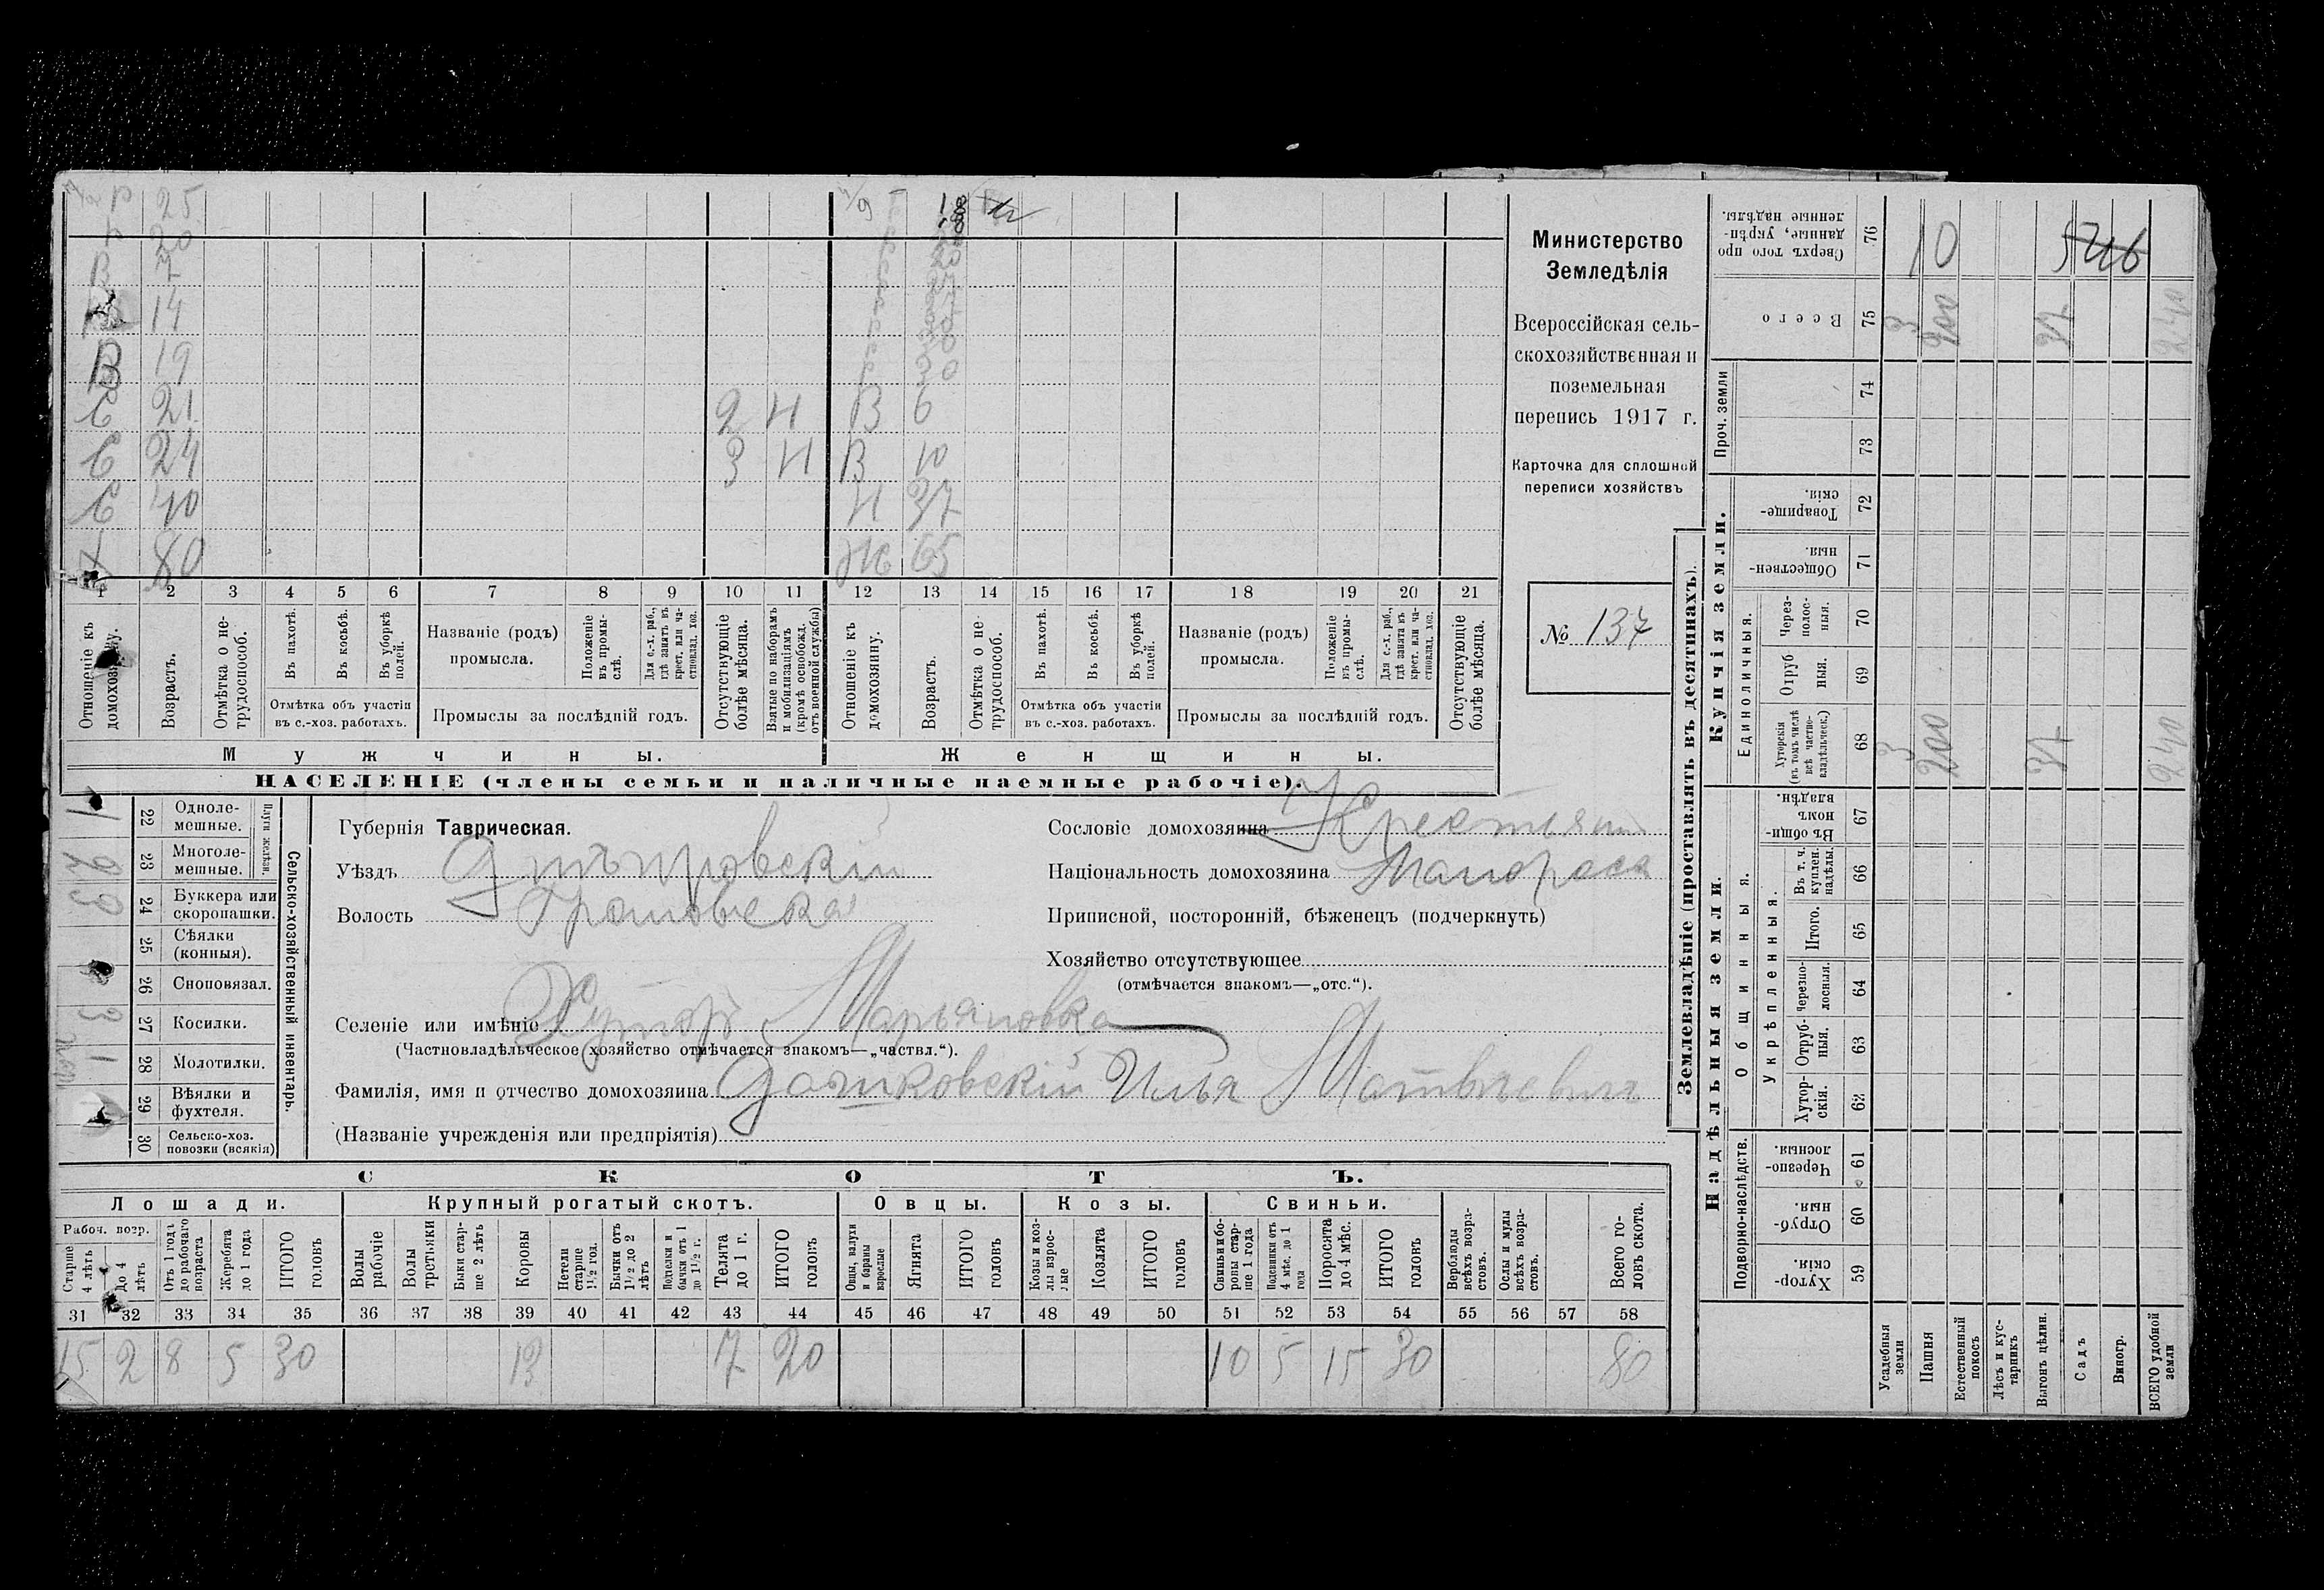 25
20
7
14
В 19
С 21 2 Н В 6
С 24 3 Н В 10
С 40 Н 37
Х 80 Ж 65
1 2 3 4 5 6 7 8 9 10 11 12 13 14 15 16 17 18 19 20 21
Отношеніе къ домохозяину.
Возрастъ.
Отмѣтка о не-трудоспособ.
Въ пахотѣ.
Въ косьбѣ.
Въ уборкѣ полей.
Отмѣтка объ участіи въ с.-хоз. работахъ.
Названіе (родъ) промысла.
Положеніе въ промы-слѣ.
Для с.-х. раб., гдѣ занятъ въ крест. или ча-стновлад. хоз.
Промыслы за послѣдній годъ.
Отсутствующіе болѣе мѣсяца.
Взятые по наборамъ и мобилизаціямъ (кромѣ освобожд. отъ военной службы)
Отношеніе къ домохозяину.
Возрастъ.
Отмѣтка о не-трудоспособ.
Въ пахотѣ.
Въ косьбѣ.
Въ уборкѣ полей.
Отмѣтка объ участіи въ с.-хоз. работахъ.
Названіе (родъ) промысла.
Положеніе въ промы-слѣ.
Для с.-х. раб., гдѣ занята въ крест. или ча-стновлад. хоз.
Промыслы за послѣдній годъ.
Отсутствующіе болѣе мѣсяца.
Мужчины. Женщины.
НАСЕЛЕНІЕ (члены семьи и наличные наемные рабочіе).
Министерство
Земледѣлія
Всероссійская сель-
скохозяйственная и
поземельная
перепись 1917 г.
Карточка для сплошной
переписи хозяйствъ
№ 137
22 Одноле-мешные.
23 Многоле-мешные.
Плуги желѣзн.
24 Буккера или скоропашки.
25 Сѣялки (конныя).
26 Сноповязал.
27 Косилки.
28 Молотилки.
29 Вѣялки и фухтеля.
30 Сельско-хоз. повозки (всякія)
Сельско-хозяйственный инвентарь.
Губернія Таврическая.
Уѣздъ Днѣпровскій
Волость Громовская
Селеніе или имѣніе Хуторъ Марьяновка
(Частновладѣльческое хозяйство отмѣчается знакомъ—„частвл.“).
Фамилія, имя и отчество домохозяина Дошковскій Илья Матвѣевичъ
(Названіе учрежденія или предпріятія)
Сословіе домохозяина Крестьян
Національность домохозяина Малоросс
Приписной, посторонній, бѣженецъ (подчеркнуть)
Хозяйство отсутствующее
(отмѣчается знакомъ—„отс.“).
СКОТЪ.
Лошади. Крупный рогатый скотъ. Овцы. Козы. Свиньи.
Рабоч. возр.
Старше 4 лѣтъ
До 4 лѣтъ
Отъ 1 года до рабочаго возраста
Жеребята до 1 года
ИТОГО головъ
Волы рабочіе
Волы третьяки
Быки стар-ше 2 лѣтъ
Коровы
Нетели старше 1½ год.
Бычки отъ 1½ до 2 лѣтъ
Подтелки и бычки отъ 1 до 1½ г.
Телята до 1 г.
ИТОГО головъ
Овцы, валухи и бараны взрослые
Ягнята
ИТОГО головъ
Козы и коз-лы взрос-лые
Козлята
ИТОГО головъ
Свиньи и бо-ровы стар-ше 1 года
Подсвинки отъ 4 мѣс. до 1 года
Поросята до 4 мѣс.
ИТОГО головъ
Верблюды всѣхъ возра-стовъ.
Ослы и мулы всѣхъ возра-стовъ.
Всего го-ловъ скота.
31 32 33 34 35 36 37 38 39 40 41 42 43 44 45 46 47 48 49 50 51 52 53 54 55 56 57 58
15 2 8 5 30 13 7 20 10 5 15 30 80
Землевладѣніе (проставлять въ десятинахъ).
Надѣльныя земли. Купчія земли. Проч. земли
Подворно-наслѣдств.
Общинныя.
Укрѣпленныя.
Единоличныя.
Сверхъ того про данные, укрѣп-ленные надѣлы. 76 10
Всего 75 3 200 37 240
74
73
Товарище-скія. 72
Обществен-ныя. 71
Через-полос-ныя. 70
Отруб-ныя. 69
Хуторскія (въ томъ числѣ всѣ частно-владѣльческ.) 68 3 200 37 240
Въ общин-номъ владѣн. 67
Въ т. ч. куплен. надѣлы. 66
Итого. 65
Черезпо-лосныя. 64
Отруб-ныя. 63
Хутор-скія. 62
Черезпо-лосныя 61
Отруб-ныя. 60
Хутор-скія. 59
Усадебныя земли
Пашня
Естественный покосъ
Лѣсъ и кус-тарникъ
Выгонъ цѣлин.
Садъ
Виногр.
ВСЕГО удобной земли